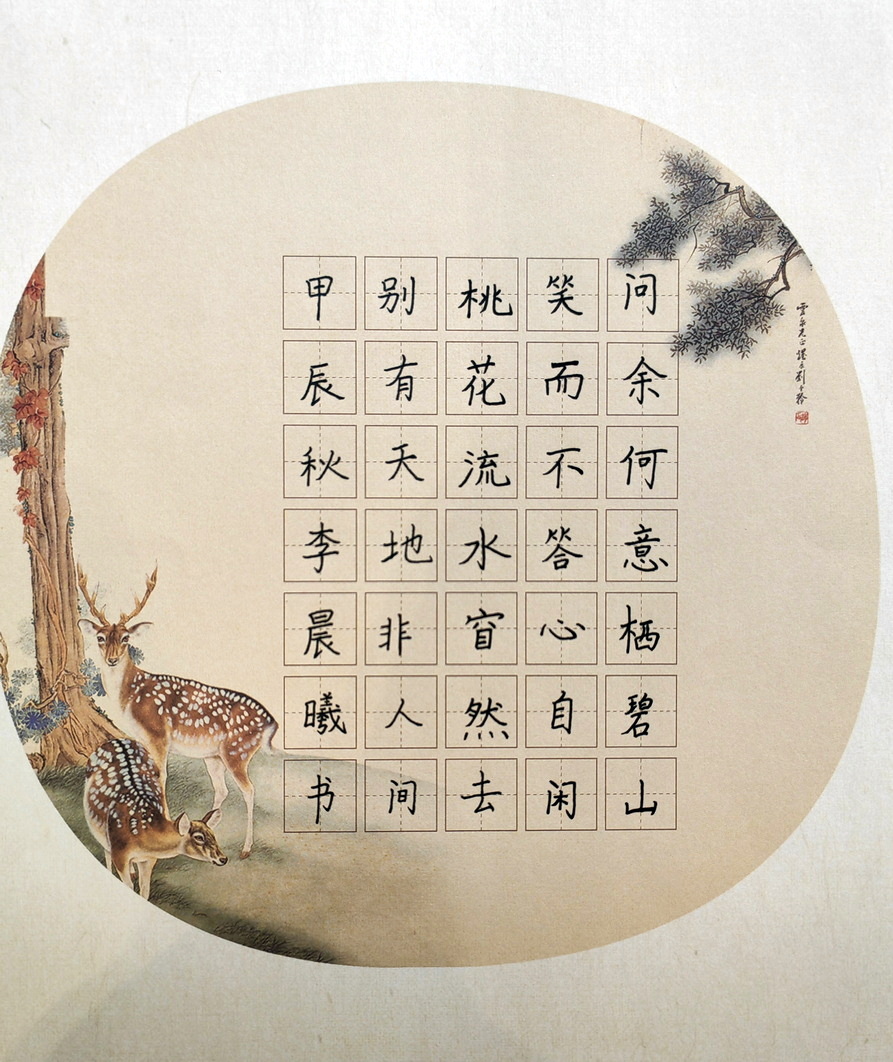 问余何意栖碧山
笑而不答心自闲
桃花流水窅然去
别有天地非人间
甲辰秋李晨曦书